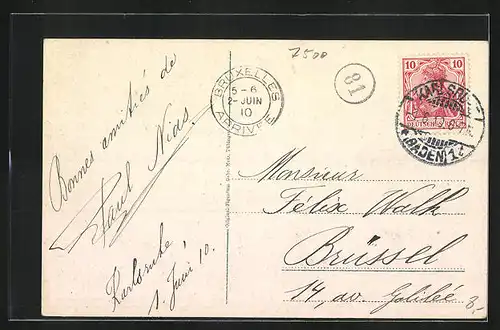 7500
Bonnes amitiés de
Paul Nids.
Karlsruhe
1. Juni 10.
BRUXELLES
5-6
2-JUIN
10
ARRIVEE
81
10 10
DEUTSCHES REICH
KARLSRU
(BADEN) 1
Monsieur
Félix Walk
Brüssel
14, av. Galilée
8,-